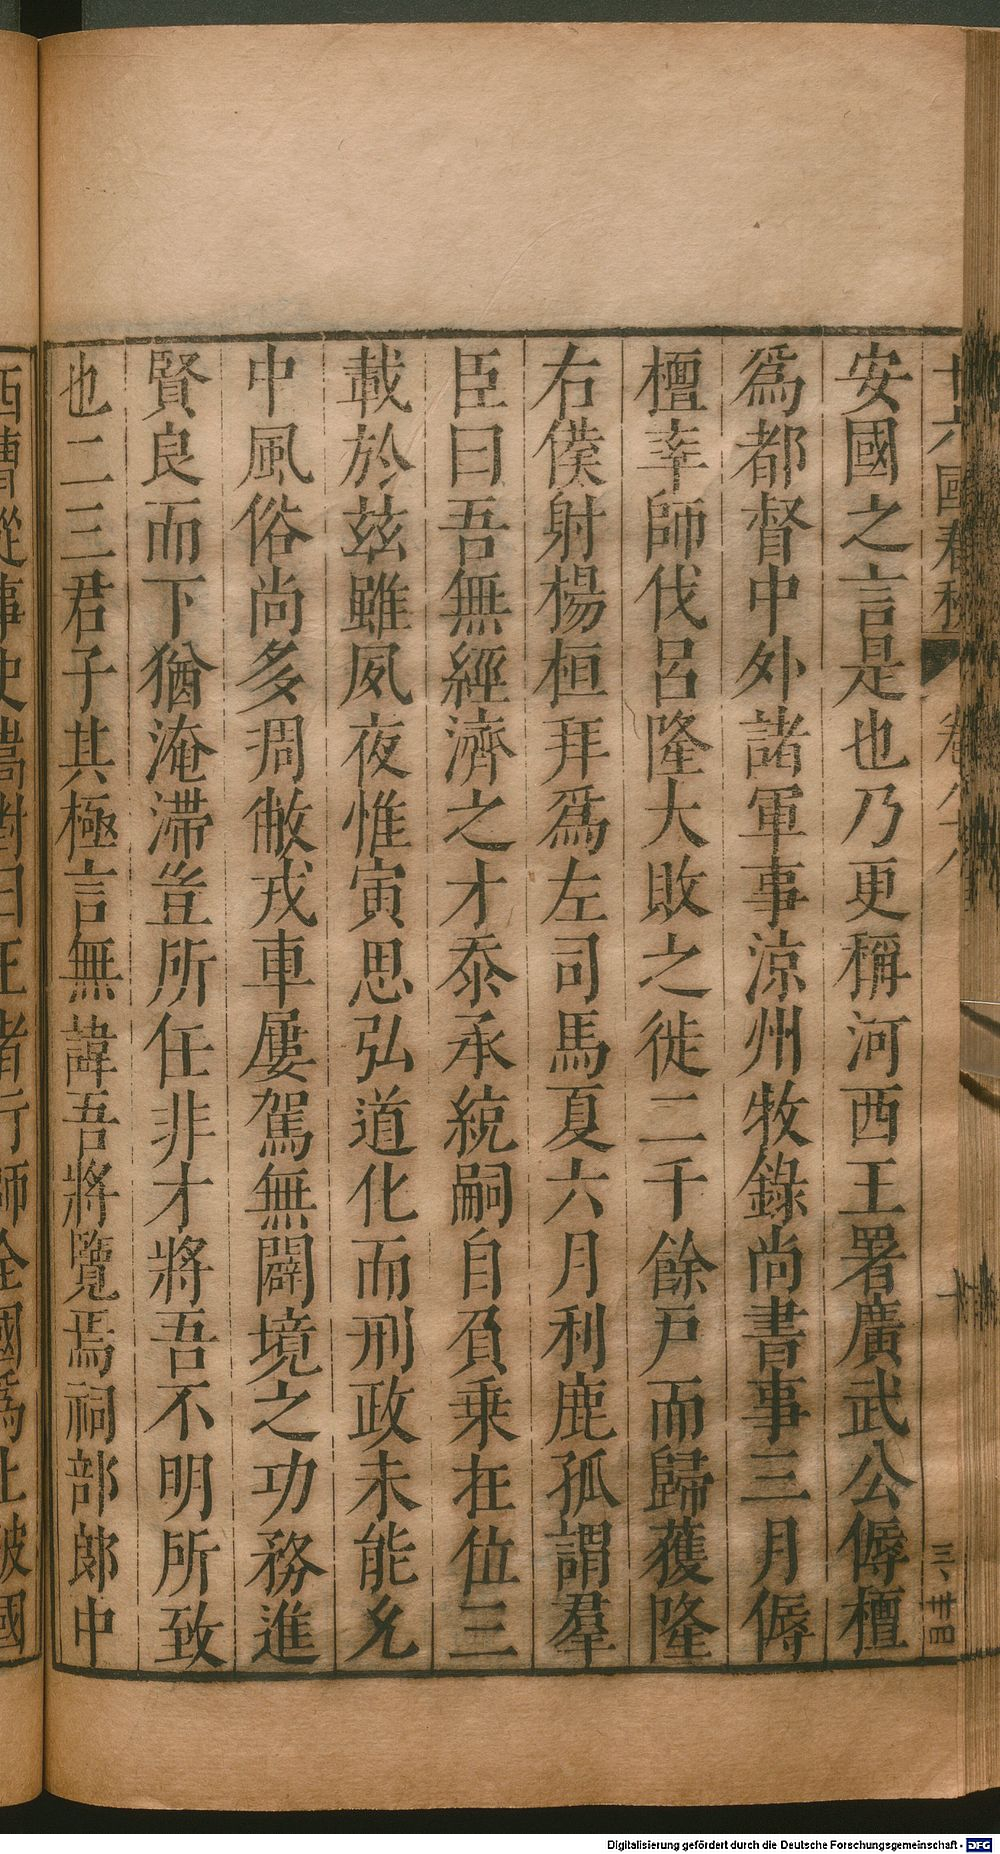 安國之言是也乃更稱河西王署廣武公傉檀
爲都督中外諸軍事涼州牧錄尚書事三月傉
檀率師伐呂隆大敗之徙二千餘戶而歸獲隆
右僕射楊桓拜爲左司馬夏六月利鹿孤謂羣
臣曰吾無經濟之才忝承統嗣自負乗在位三
載於兹雖夙夜惟寅思弘道化而刑政未能允
中風俗尚多凋敝戎車屢駕無闢境之功務進
賢良而下猶淹滯豈所任非才將吾不明所致
也二三君子其極言無諱吾將覽焉祠部郎中
Digitalisierung gefördert durch die Deutsche Forschungsgemeinschaft - DFG